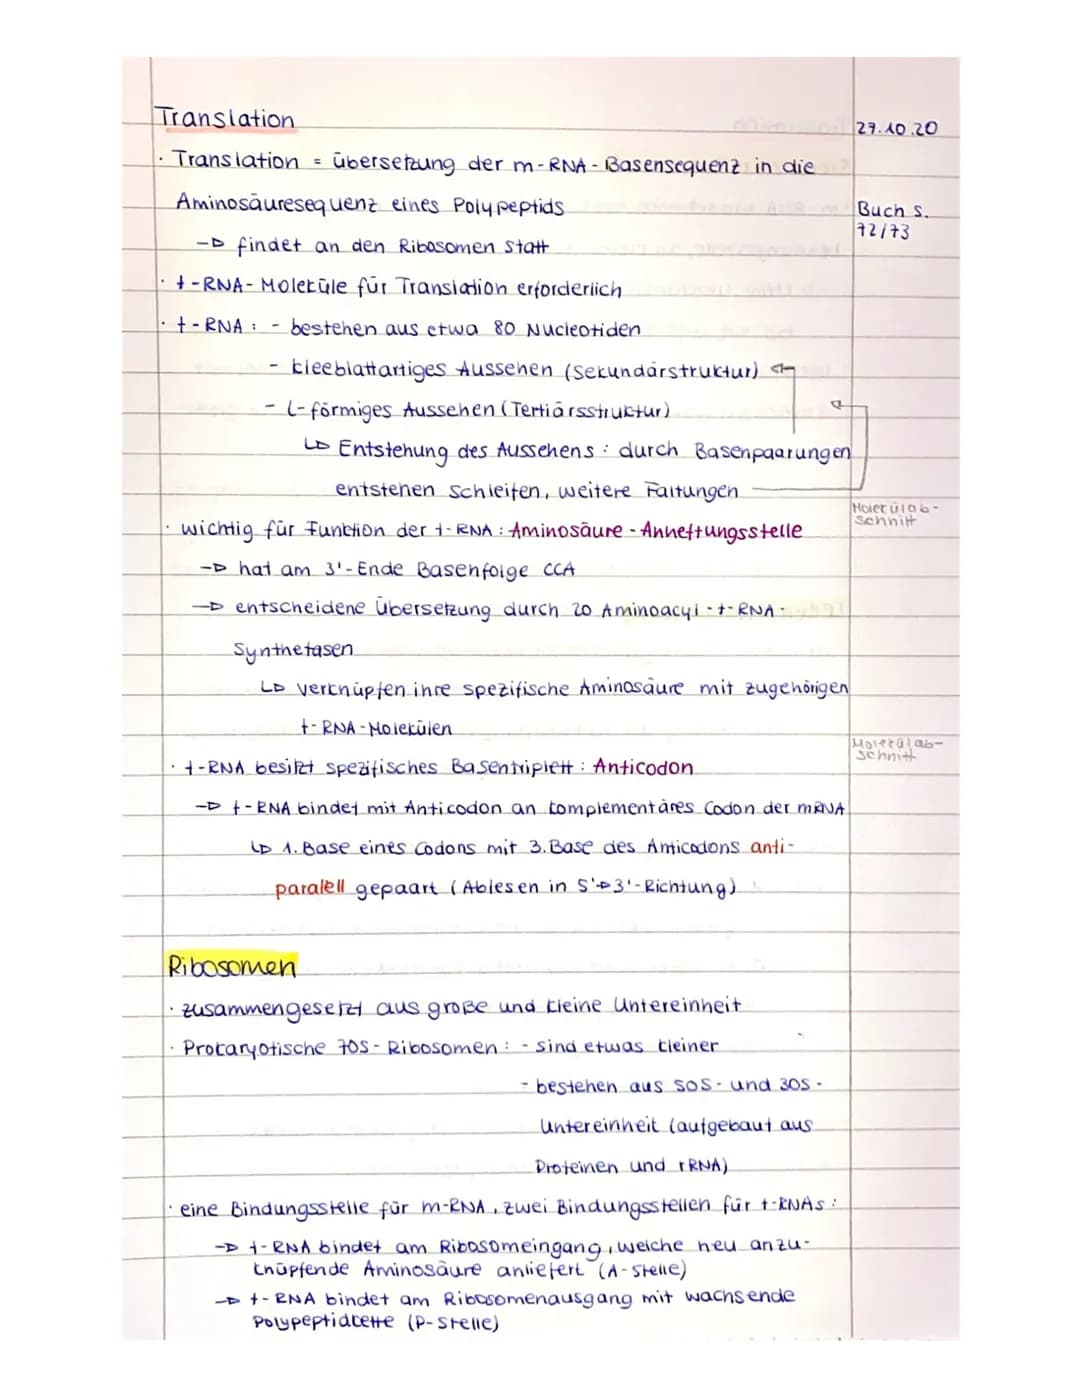 Translation
27.10.20
· Translation = übersetzung der m-RNA-Basensequenz in die
Aminosäuresequenz eines Polypeptids
Buch S.
72/73
→ findet an den Ribosomen statt
· t-RNA-Moleküle für Translation erforderlich
· t-RNA: - bestehen aus etwa 80 Nucleotiden
- kleeblattartiges Aussehen (Sekundärstruktur)
- L-förmiges Aussehen (Tertiärsstruktur)
↳ Entstehung des Aussehens: durch Basenpaarungen
entstehen Schleifen, weitere Faltungen
Molekülab-
schnitt
· wichtig für Funktion der t-RNA: Aminosäure-Anheftungsstelle
→ hat am 3'-Ende Basenfolge CCA
→ entscheidene Übersetzung durch 20 Aminoacyl-t-RNA-
Synthetasen
↳ verknüpfen ihre spezifische Aminosäure mit zugehörigen
t-RNA-Molekülen
Molekülab-
schnitt
· t-RNA besitzt spezifisches Basentriplett: Anticodon
→ t-RNA bindet mit Anticodon an komplementäres Codon der mRNA
↳ 1. Base eines Codons mit 3. Base des Anticodons anti-
paralell gepaart (Ablesen in 5'→3'-Richtung)
Ribosomen
· zusammengesetzt aus große und kleine Untereinheit
· Prokaryotische 70S-Ribosomen: - sind etwas kleiner
- bestehen aus 50S- und 30S-
Untereinheit (aufgebaut aus
Proteinen und rRNA)
· eine Bindungsstelle für m-RNA, zwei Bindungsstellen für t-RNAs:
→ t-RNA bindet am Ribosomeingang, welche neu anzu-
knüpfende Aminosäure anliefert (A-Stelle)
→ t-RNA bindet am Ribosomenausgang mit wachsende
Polypeptidkette (P-Stelle)